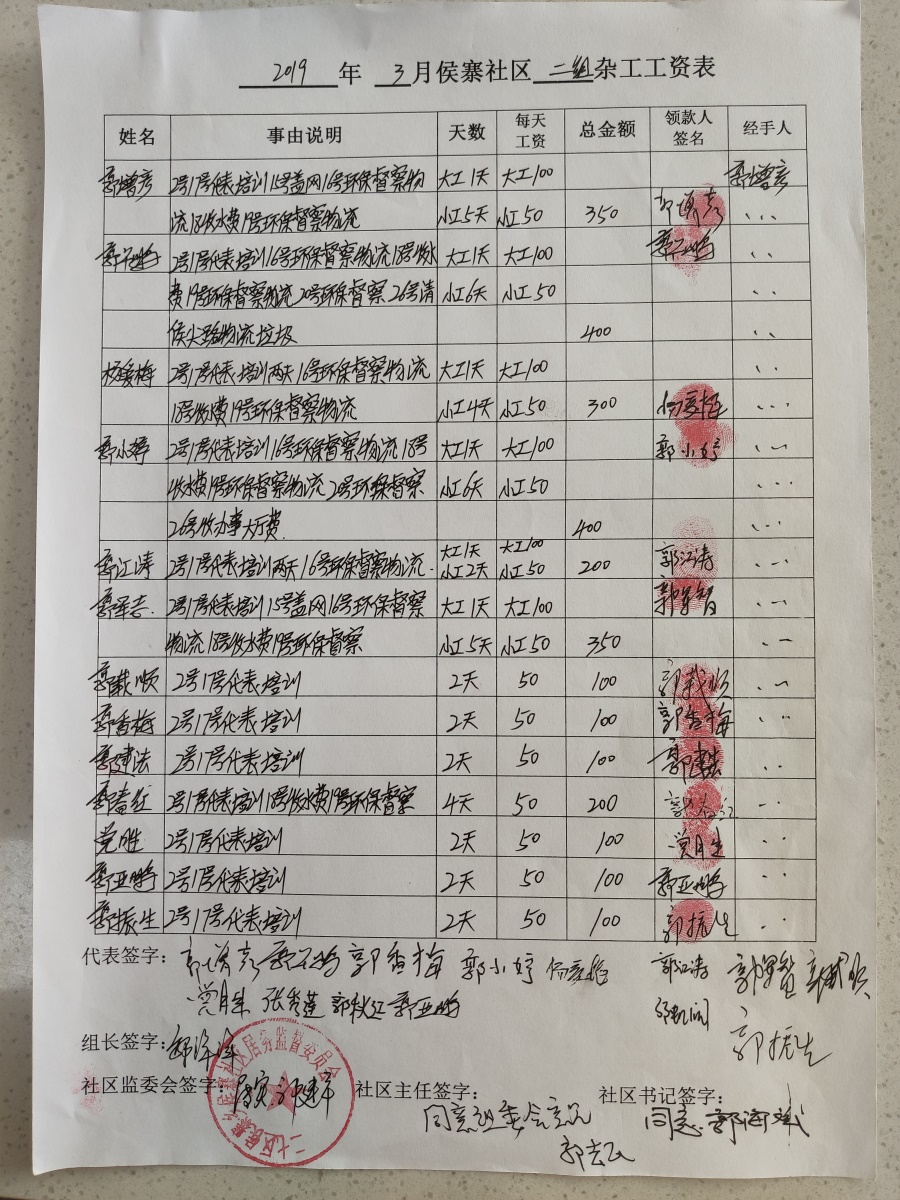 2019 年 3 月侯寨社区 二组 杂工工资表
姓名 事由说明 天数 每天工资 总金额 领款人签名 经手人
郭增彦 2号17号代表培训15号盖网16号环保督察物 大工1天 大工100 郭增彦
流18收水费19号环保督察物流 小工5天 小工50 350 郭增彦
2号17号代表培训16号环保督察物流18号收水 大工1天 大工100
费19号环保督察物流20号环保督察26号清 小工6天 小工50
侯尖路物流垃圾 400
杨爱梅 2号17号代表培训两天16号环保督察物流 大工1天 大工100
18号收水费19号环保督察物流 小工4天 小工50 300 杨爱梅
郭小婷 2号17号代表培训16号环保督察物流18号 大工1天 大工100 郭小婷
收水费19号环保督察物流20号环保督察 小工6天 小工50
26号收办事大厅费 400
郭江涛 2号17号代表培训两天16号环保督察物流 大工1天 小工2天 大工100 小工50 200 郭江涛
2号17号代表培训15号盖网16号环保督察 大工1天 大工100
物流18号收水费19号环保督察 小工5天 小工50 350
郭栽顺 2号17号代表培训 2天 50 100 郭栽顺
郭香梅 2号17号代表培训 2天 50 100 郭香梅
郭建法 2号17号代表培训 2天 50 100 郭建法
2号17号代表培训18号收水费19号环保督察 4天 50 200
党胜 2号17号代表培训 2天 50 100 党胜
郭亚鹏 2号17号代表培训 2天 50 100 郭亚鹏
郭振生 2号17号代表培训 2天 50 100 郭振生
代表签字: 郭增彦 郭香梅 郭小婷 杨爱梅 郭江涛
党胜 张秀莲 郭秋江 郭亚鹏
郭振生
组长签字:
社区监委会签字: 社区主任签字: 社区书记签字:
同意组委会意见 同意